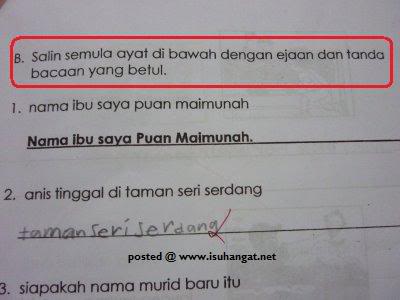 B. Salin semula ayat di bawah dengan ejaan dan tanda
bacaan yang betul.
1. nama ibu saya puan maimunah
Nama ibu saya Puan Maimunah.
2. anis tinggal di taman seri serdang
taman seri serdang
posted @ www.isuhangat.net
3. siapakah nama murid baru itu